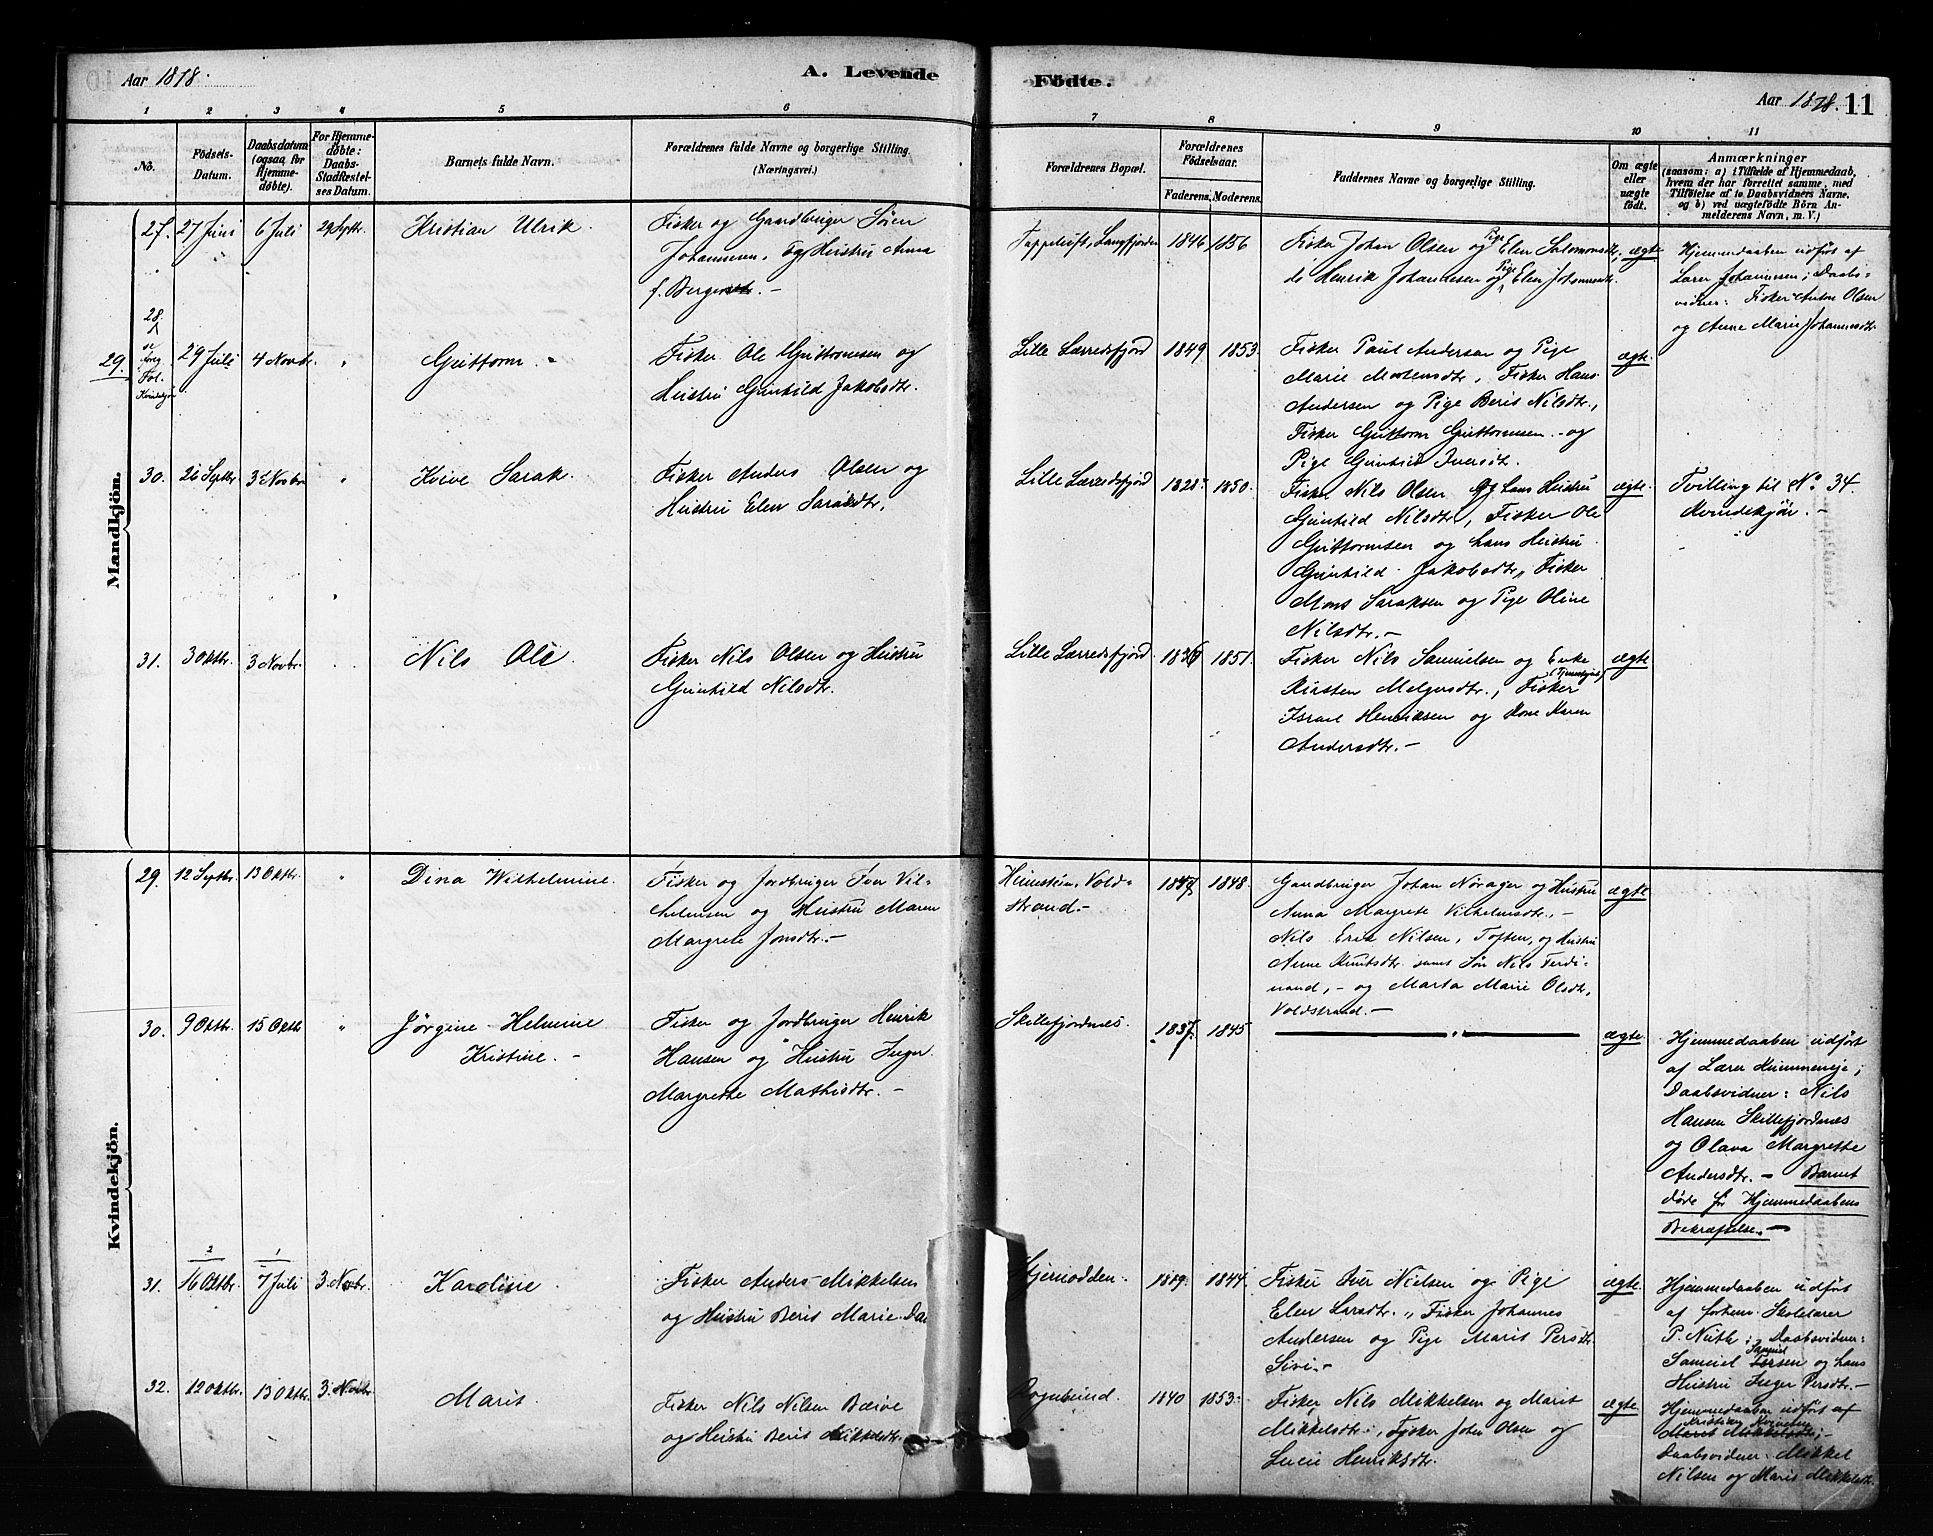 Aar 1878.
A. Levende
Födte.
Aar 1878. 11
1 2 3 4 5 6 7 8 9 10 11
No.
Födsels-
Datum.
Daabsdatum
(ogsaa for
Hjemme-
döbte).
For Hjemme-
döbte:
Daabs-
Stadfæstel-
ses Datum.
Barnets fulde Navn.
Forældrenes fulde Navne og borgerlige Stilling.
(Næringsvei.)
Forældrenes Bopæl.
Forældrenes
Födselsaar.
Faderens. Moderens.
Faddernes Navne og borgerlige Stilling.
Om ægte
eller
uægte
født.
Anmærkninger
(saasom: a) i Tilfælde af Hjemmedaab,
hvem der har forrettet samme, med
Tilföielse af to Daabsvidners Navne,
og b) ved uægtefödte Börn An-
melderens Navn, m. V.)
Mandkjön.
27. 27 Juni 6 Juli 29 Septbr. Kristian Ulrik.
Fisker og Gaardbruger Sören
Johannesen, og Hustru Anna
f. Berger.-
Tappeluft, Langfjorden 1846 1856
Fisker Johan Olsen og Pige Elen Salomonsdtr,
do Henrik Johannesen og Pige Elen Johannesdtr.
ægte
Hjemmedaaben udført af
Lærer Johannesen; Daabs-
vidner: Fisker Anton Olsen
og Anne Marie Johannesdtr.
28.
29. 29 Juli 4 Novbr. " Guttorm.
Fisker Ole Guttormsen og
Hustru Gunhild Jakobsdtr.
Lille Lærredsfjord 1849 1853.
Fisker Paul Andersen og Pige
Marie Mortensdtr, Fisker Hans
Andersen og Pige Beris Nilsdtr,
Fisker Guttorm Guttormsen - og
Pige Gunhild Iversdt.
ægte.
30. 26 Septbr 3 Novbr " Kvive Sarak.
Fisker Anders Olsen og
Hustru Elen Saraksdtr,
Lille Lærredsfjord 1828 1850.
Fisker Nils Olsen og hans Hustru
Gunhild Nilsdtr, Fisker Ole
Guttormsen og hans Hustru
Gunhild Jakobsdtr, Fisker
Mons Saraksen og Pige Oline
Nilsdtr.-
ægte.
Tvilling til No 34.
Kvindekjön.-
31. 30 Oktbr. 3 Novbr. Nils Ole.
Fisker Nils Olsen og Hustru
Gunhild Nilsdtr.
Lille Lærredsfjord 1851.
Fisker Nils Samuelsen og Enke
Kirsten Melgersdtr., Fisker
Israel Henriksen og Kone Karen
Andersdtr.-
ægte
Kvindekjön.
29. 12 Septbr. 13 Oktbr. " Dina Wilhelmine.
Fisker og Jordbruger Iver Vil-
helmsen og Hustru Maren
Margrete Jonsdtr.-
Vold-
strand.- 1848.
Gaardbruger Johan Norager og Hustru
Anna Margrete Vilhelmsdtr,-
Nils Erik Nilsen, Toften, og Hustru
Anne Knutsdtr samt Sön Nils Ferdi-
nand, - og Marta Marie Olsdtr,
Voldstrand.-
ægte
30. 9 Oktbr. 15 Oktb " Jørgine Helmine
Kristine.-
Fisker og Jordbruger Henrik
Hansen og Hustru Inger
Margrethe Mathisdtr.-
Skillefjordnes. 1837. 1845
ægte.
Hjemmedaaben udført
af Lærer
Daabsvidner: Nils
Hansen Skillefjordnes
og Olava Margrethe
Andersdtr.- Barnet
døde før Hjemmedaabens
Bekræftelse.-
31. 2 16 Oktbr. 1 7 Juli 3. Novbr. Karoline.
Fisker Anders Mikkelsen
og Hustru Beret Marie
1844.
Fisker Iver Nielsen og Pige
Elen Larsdtr., Fisker Johannes
Andersen og Pige Marit Persdtr
Sivi.-
ægte
Hjemmedaaben udført
af forhenv. Skolelærer
P. Nuth; Daabsvidner:
Samuel og hans
Hustru Inger Persdtr.-
32. 12 Oktbr. 13 Oktbr. 3. Novbr Marit.
Fisker Nils Nilsen Bæive
og Hustru Beret Mikkelsdtr.
Rognsund 1840 1853
Fisker Nils Mikkelsen og Marit
Mikkelsdtr, Fisker John Olsen og
Lucie Henriksdtr.
ægte
Hjemmedaaben udført af
Kristian
Marit Mikkelsdtr;-
Daabsvidner: Mikkel
Nilsen og Marit Mikkelsdtr.